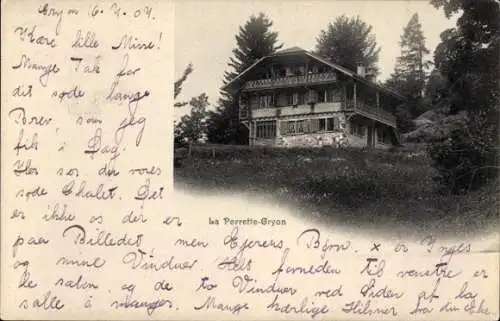 Gryon 16.7.04.
Kære lille Misse!
Mange Tak for
dit søde lange
Brev, som jeg
fik i Dag.
Her ser du vores
søde Chalet. Det
er ikke os der er
paa Billedet men Ejerens Børn. x er Ingers
og mine Vinduer Helt forneden til venstre er
le salon og de to Vinduer ved Siden af la
salle à manger. Mange kærlige Hilsner fra din
La Perrette-Gryon